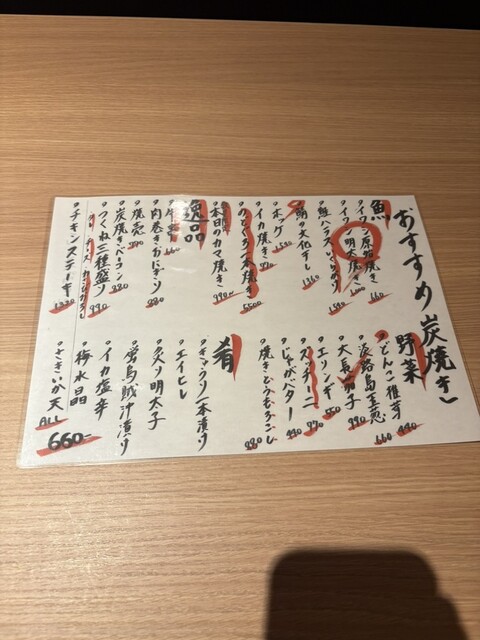 おすすめ炭焼き
魚
イワシ原始焼き 660
イワシ明太焼き
鮭ハラスいくらのり 1590
鯖の文化干し 1360
ホッケ 1580
イカ焼き 970
のどぐろ一本焼き 5500
本日のカマ焼き 990~
逸品
焼売
肉巻きおにぎり 280
炭焼きベーコン 880
つくね三種盛り 990
チキンステーキ 1320
野菜
どんこ椎茸 440
淡路島玉葱 660
大長茄子 990
エリンギ 550
ズッキーニ 770
じゃがバター 440
焼きとうもろこし 980
肴
キュウリ一本漬け
エイヒレ
炙り明太子
蛍烏賊沖漬け
イカ塩辛
梅水晶
さきいか天
ALL
660-